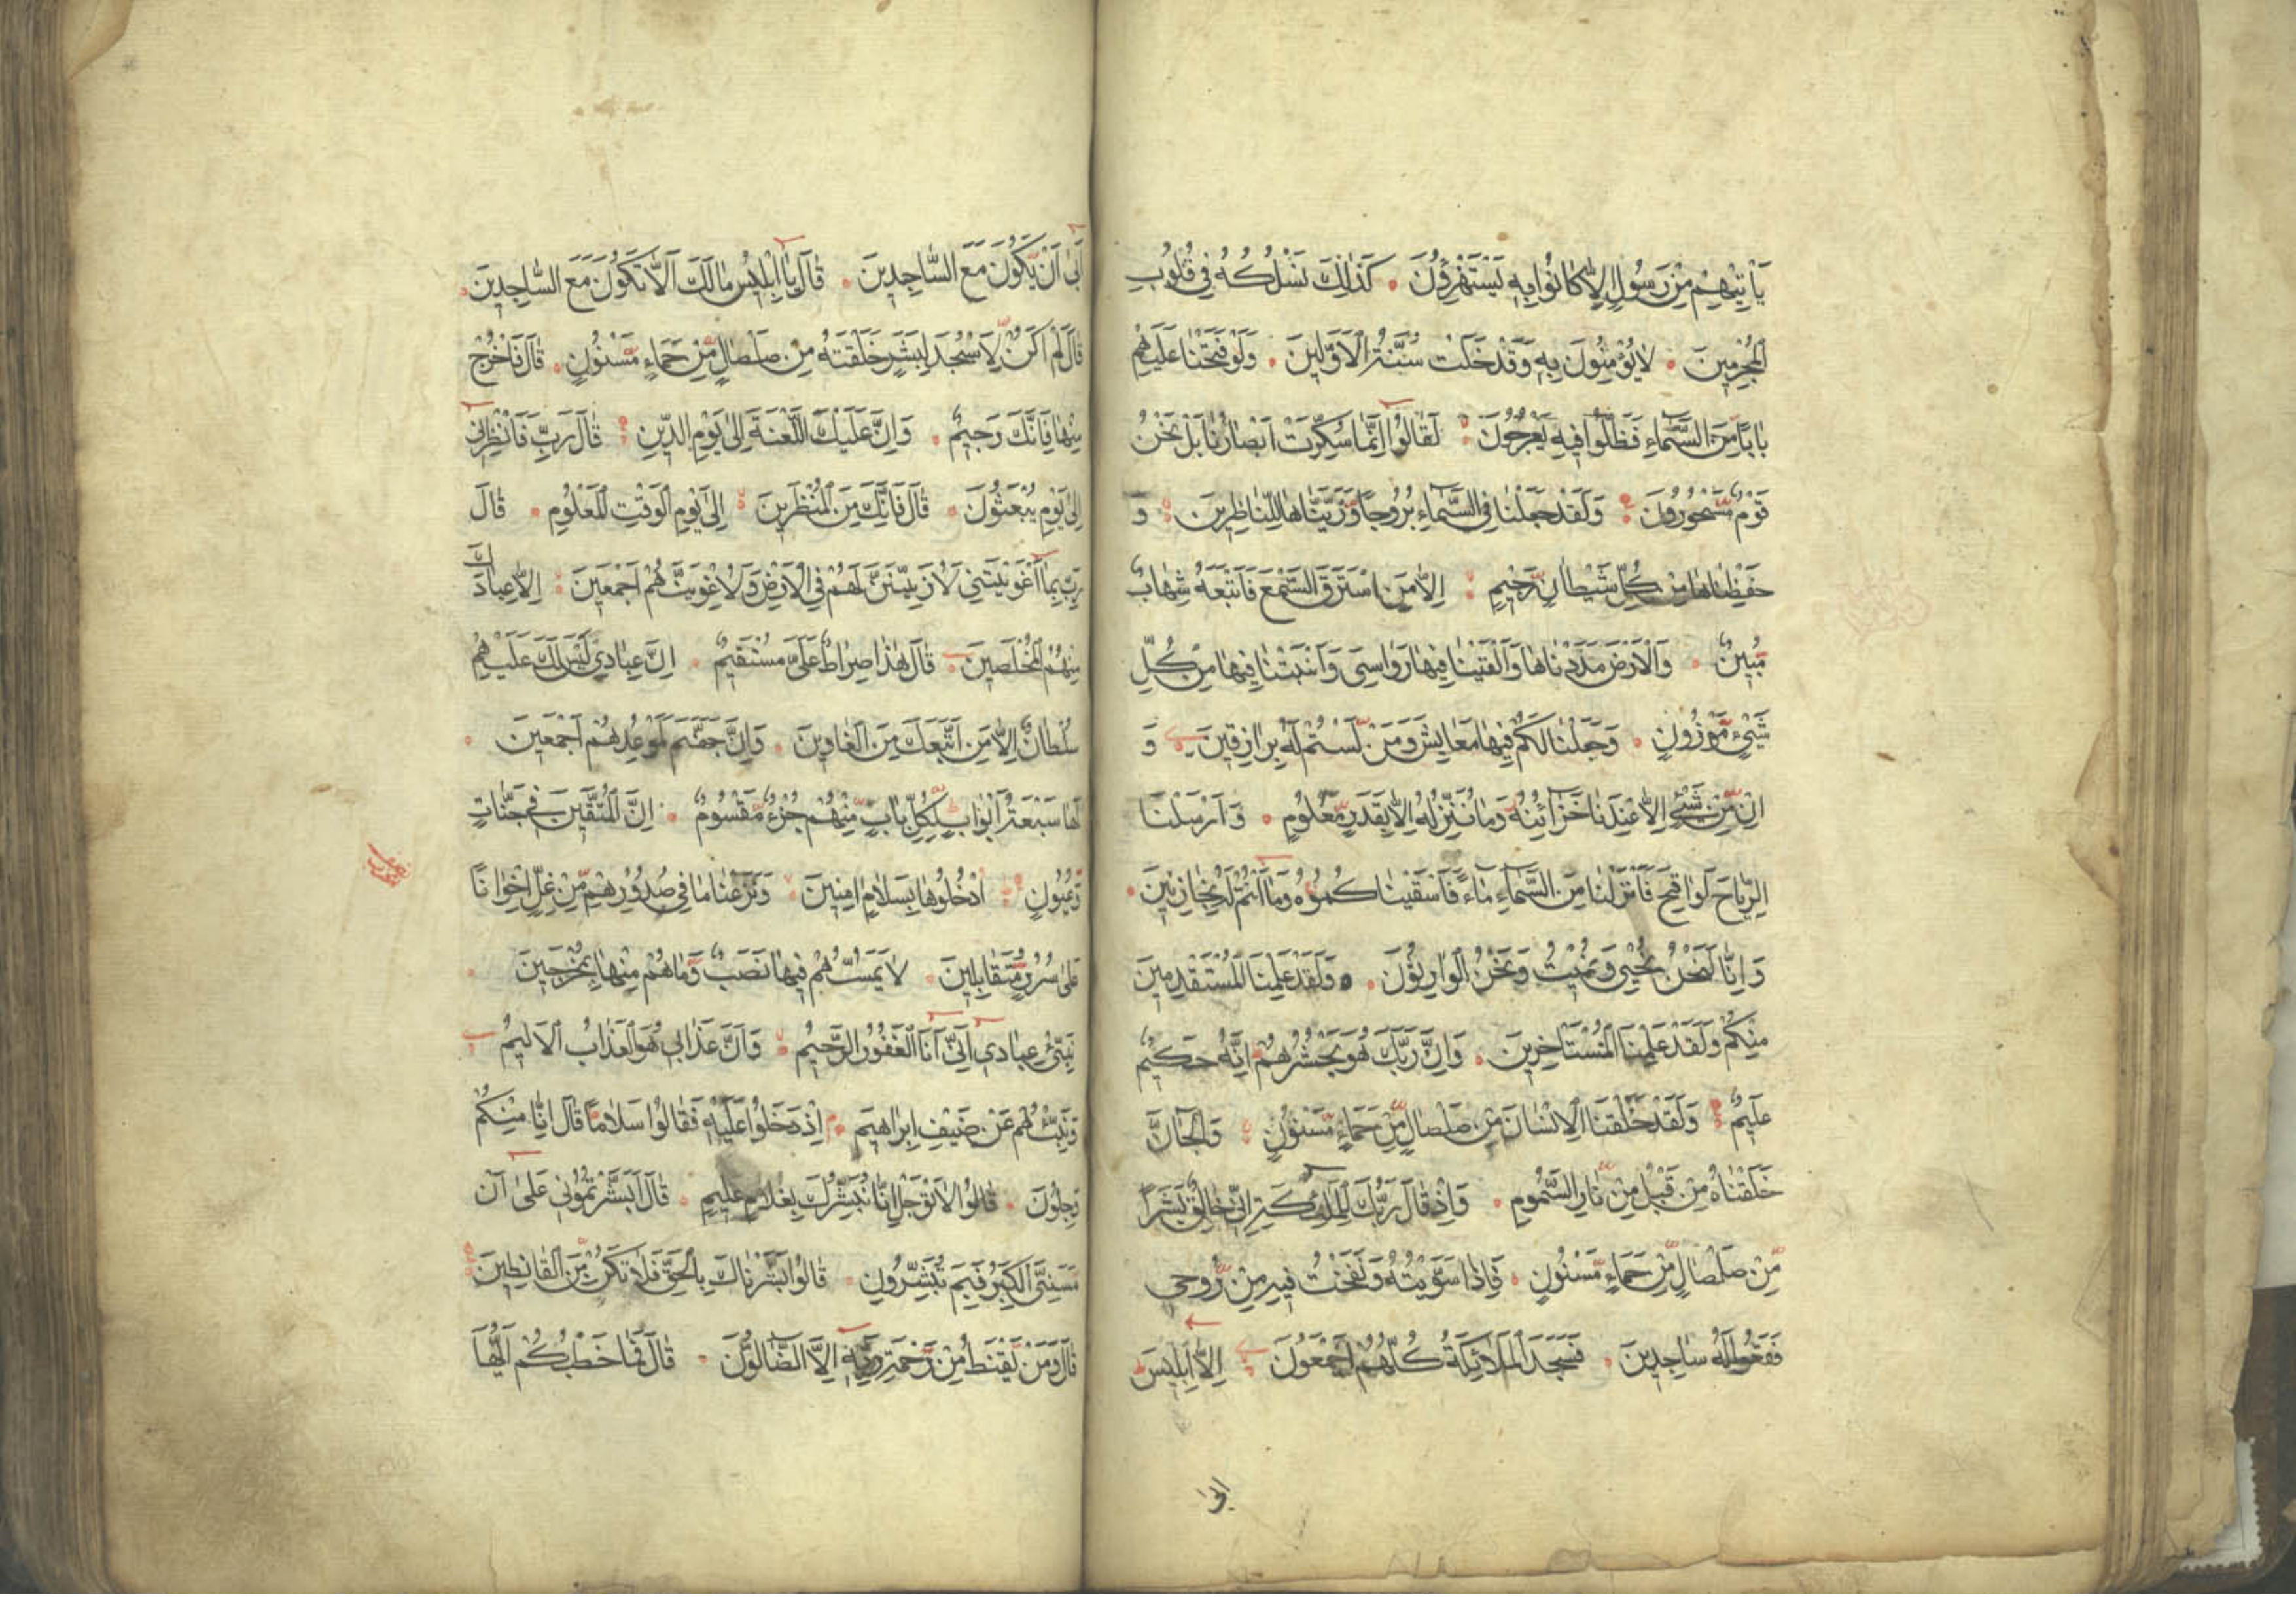 يَأْتِيهِمْ مِنْ رَسُولٍ إِلَّا كَانُوا بِهِ يَسْتَهْزِؤُنَ كَذَٰلِكَ نَسْلُكُهُ فِي قُلُوبِ
الْمُجْرِمِينَ لَا يُؤْمِنُونَ بِهِ وَقَدْ خَلَتْ سُنَّةُ الْأَوَّلِينَ وَلَوْ فَتَحْنَا عَلَيْهِمْ
بَابًا مِنَ السَّمَاءِ فَظَلُّوا فِيهِ يَعْرُجُونَ لَقَالُوا إِنَّمَا سُكِّرَتْ أَبْصَارُنَا بَلْ نَحْنُ
قَوْمٌ مَسْحُورُونَ وَلَقَدْ جَعَلْنَا فِي السَّمَاءِ بُرُوجًا وَزَيَّنَّاهَا لِلنَّاظِرِينَ وَ
حَفِظْنَاهَا مِنْ كُلِّ شَيْطَانٍ رَجِيمٍ إِلَّا مَنِ اسْتَرَقَ السَّمْعَ فَأَتْبَعَهُ شِهَابٌ
مُبِينٌ وَالْأَرْضَ مَدَدْنَاهَا وَأَلْقَيْنَا فِيهَا رَوَاسِيَ وَأَنْبَتْنَا فِيهَا مِنْ كُلِّ
شَيْءٍ مَوْزُونٍ وَجَعَلْنَا لَكُمْ فِيهَا مَعَايِشَ وَمَنْ لَسْتُمْ لَهُ بِرَازِقِينَ وَ
إِنْ مِنْ شَيْءٍ إِلَّا عِنْدَنَا خَزَائِنُهُ وَمَا نُنَزِّلُهُ إِلَّا بِقَدَرٍ مَعْلُومٍ وَأَرْسَلْنَا
الرِّيَاحَ لَوَاقِحَ فَأَنْزَلْنَا مِنَ السَّمَاءِ مَاءً فَأَسْقَيْنَاكُمُوهُ وَمَا أَنْتُمْ لَهُ بِخَازِنِينَ
وَإِنَّا لَنَحْنُ نُحْيِي وَنُمِيتُ وَنَحْنُ الْوَارِثُونَ وَلَقَدْ عَلِمْنَا الْمُسْتَقْدِمِينَ
مِنْكُمْ وَلَقَدْ عَلِمْنَا الْمُسْتَأْخِرِينَ وَإِنَّ رَبَّكَ هُوَ يَحْشُرُهُمْ إِنَّهُ حَكِيمٌ
عَلِيمٌ وَلَقَدْ خَلَقْنَا الْإِنْسَانَ مِنْ صَلْصَالٍ مِنْ حَمَإٍ مَسْنُونٍ وَالْجَانَّ
خَلَقْنَاهُ مِنْ قَبْلُ مِنْ نَارِ السَّمُومِ وَإِذْ قَالَ رَبُّكَ لِلْمَلَائِكَةِ إِنِّي خَالِقٌ بَشَرًا
مِنْ صَلْصَالٍ مِنْ حَمَإٍ مَسْنُونٍ فَإِذَا سَوَّيْتُهُ وَنَفَخْتُ فِيهِ مِنْ رُوحِي
فَقَعُوا لَهُ سَاجِدِينَ فَسَجَدَ الْمَلَائِكَةُ كُلُّهُمْ أَجْمَعُونَ إِلَّا إِبْلِيسَ
أَبَىٰ
أَبَىٰ أَنْ يَكُونَ مَعَ السَّاجِدِينَ قَالَ يَا إِبْلِيسُ مَا لَكَ أَلَّا تَكُونَ مَعَ السَّاجِدِينَ
قَالَ لَمْ أَكُنْ لِأَسْجُدَ لِبَشَرٍ خَلَقْتَهُ مِنْ صَلْصَالٍ مِنْ حَمَإٍ مَسْنُونٍ قَالَ فَاخْرُجْ
مِنْهَا فَإِنَّكَ رَجِيمٌ وَإِنَّ عَلَيْكَ اللَّعْنَةَ إِلَىٰ يَوْمِ الدِّينِ قَالَ رَبِّ فَأَنْظِرْنِي
إِلَىٰ يَوْمِ يُبْعَثُونَ قَالَ فَإِنَّكَ مِنَ الْمُنْظَرِينَ إِلَىٰ يَوْمِ الْوَقْتِ الْمَعْلُومِ قَالَ
رَبِّ بِمَا أَغْوَيْتَنِي لَأُزَيِّنَنَّ لَهُمْ فِي الْأَرْضِ وَلَأُغْوِيَنَّهُمْ أَجْمَعِينَ إِلَّا عِبَادَكَ
مِنْهُمُ الْمُخْلَصِينَ قَالَ هَٰذَا صِرَاطٌ عَلَيَّ مُسْتَقِيمٌ إِنَّ عِبَادِي لَيْسَ لَكَ عَلَيْهِمْ
سُلْطَانٌ إِلَّا مَنِ اتَّبَعَكَ مِنَ الْغَاوِينَ وَإِنَّ جَهَنَّمَ لَمَوْعِدُهُمْ أَجْمَعِينَ
لَهَا سَبْعَةُ أَبْوَابٍ لِكُلِّ بَابٍ مِنْهُمْ جُزْءٌ مَقْسُومٌ إِنَّ الْمُتَّقِينَ فِي جَنَّاتٍ
وَعُيُونٍ ادْخُلُوهَا بِسَلَامٍ آمِنِينَ وَنَزَعْنَا مَا فِي صُدُورِهِمْ مِنْ غِلٍّ إِخْوَانًا
عَلَىٰ سُرُرٍ مُتَقَابِلِينَ لَا يَمَسُّهُمْ فِيهَا نَصَبٌ وَمَا هُمْ مِنْهَا بِمُخْرَجِينَ
نَبِّئْ عِبَادِي أَنِّي أَنَا الْغَفُورُ الرَّحِيمُ وَأَنَّ عَذَابِي هُوَ الْعَذَابُ الْأَلِيمُ
وَنَبِّئْهُمْ عَنْ ضَيْفِ إِبْرَاهِيمَ إِذْ دَخَلُوا عَلَيْهِ فَقَالُوا سَلَامًا قَالَ إِنَّا مِنْكُمْ
وَجِلُونَ قَالُوا لَا تَوْجَلْ إِنَّا نُبَشِّرُكَ بِغُلَامٍ عَلِيمٍ قَالَ أَبَشَّرْتُمُونِي عَلَىٰ أَنْ
مَسَّنِيَ الْكِبَرُ فَبِمَ تُبَشِّرُونِ قَالُوا بَشَّرْنَاكَ بِالْحَقِّ فَلَا تَكُنْ مِنَ الْقَانِطِينَ
قَالَ وَمَنْ يَقْنَطُ مِنْ رَحْمَةِ رَبِّهِ إِلَّا الضَّالُّونَ قَالَ فَمَا خَطْبُكُمْ أَيُّهَا